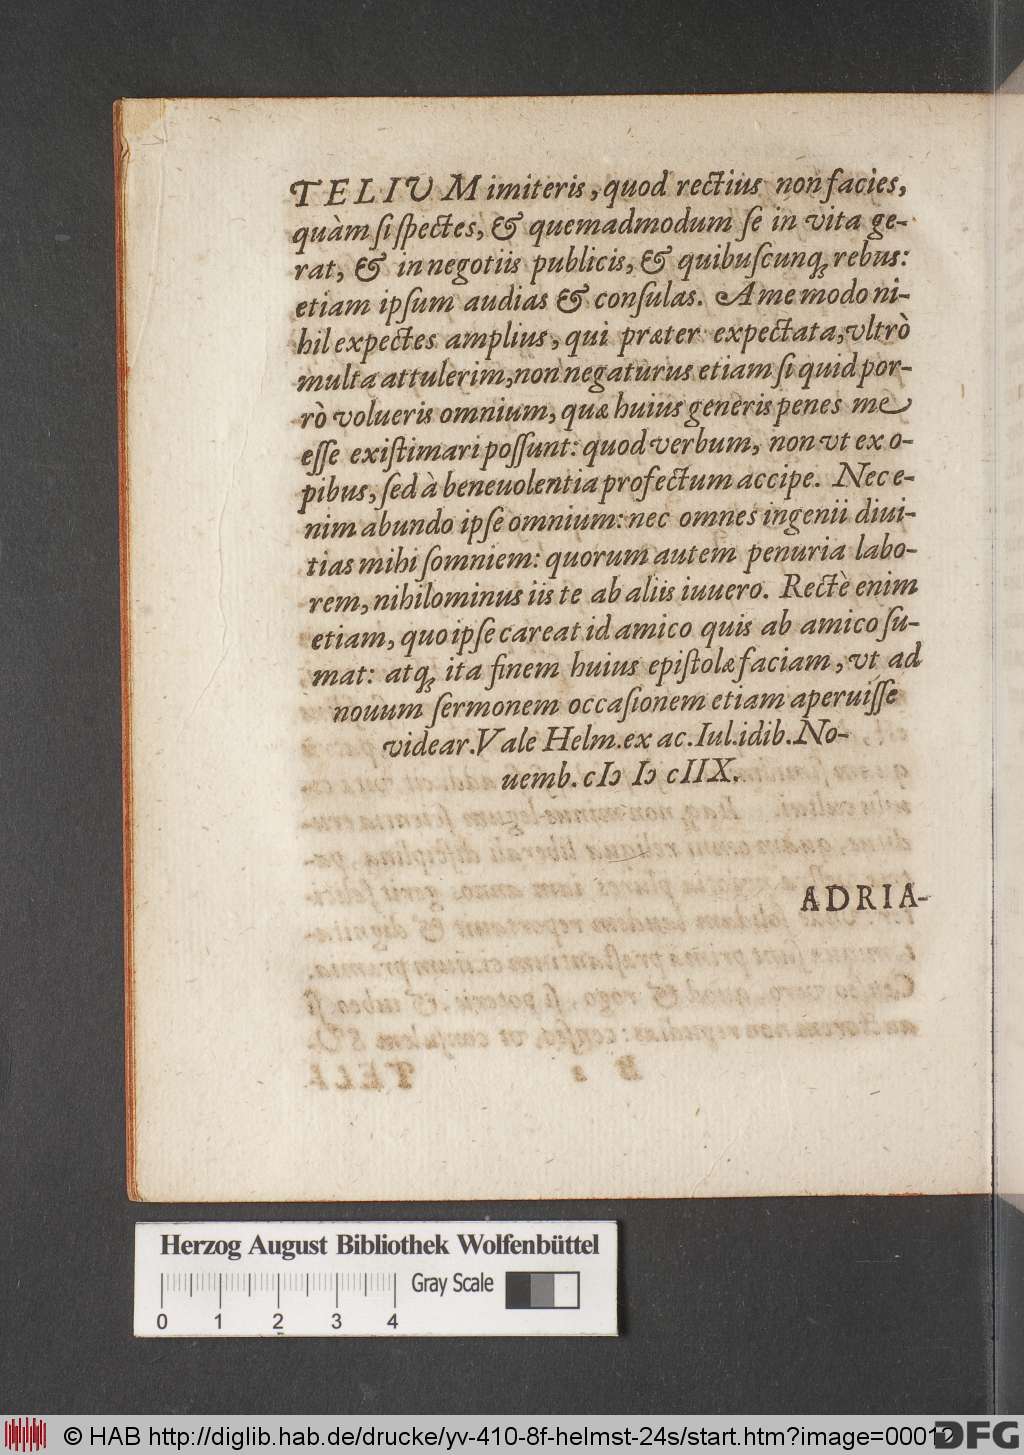 TELIUM imiteris, quod rectius non facies,
quàm si spectes, & quemadmodum se in vita ge-
rat, & in negotiis publicis, & quibuscunq; rebus:
etiam ipsum audias & consulas. A me modo ni-
hil expectes amplius, qui præter expectata, vltrò
multa attulerim, non negaturus etiam si quid por-
rò volueris omnium, quæ huius generis penes me
esse existimari possunt: quod verbum, non vt ex o-
pibus, sed à beneuolentia profectum accipe. Nec e-
nim abundo ipse omnium: nec omnes ingenii diui-
tias mihi somniem: quorum autem penuria labo-
rem, nihilominus iis te ab aliis iuuero. Rectè enim
etiam, quo ipse careat id amico quis ab amico su-
mat: atq; ita finem huius epistolæ faciam, vt ad
nouum sermonem occasionem etiam aperuisse
videar. Vale Helm. ex ac. Iul. idib. No-
uemb. cIↄ Iↄ cIIX.
ADRIA-
Herzog August Bibliothek Wolfenbüttel
Gray Scale
0 1 2 3 4
© HAB http://diglib.hab.de/drucke/yv-410-8f-helmst-24s/start.htm?image=00012
DFG